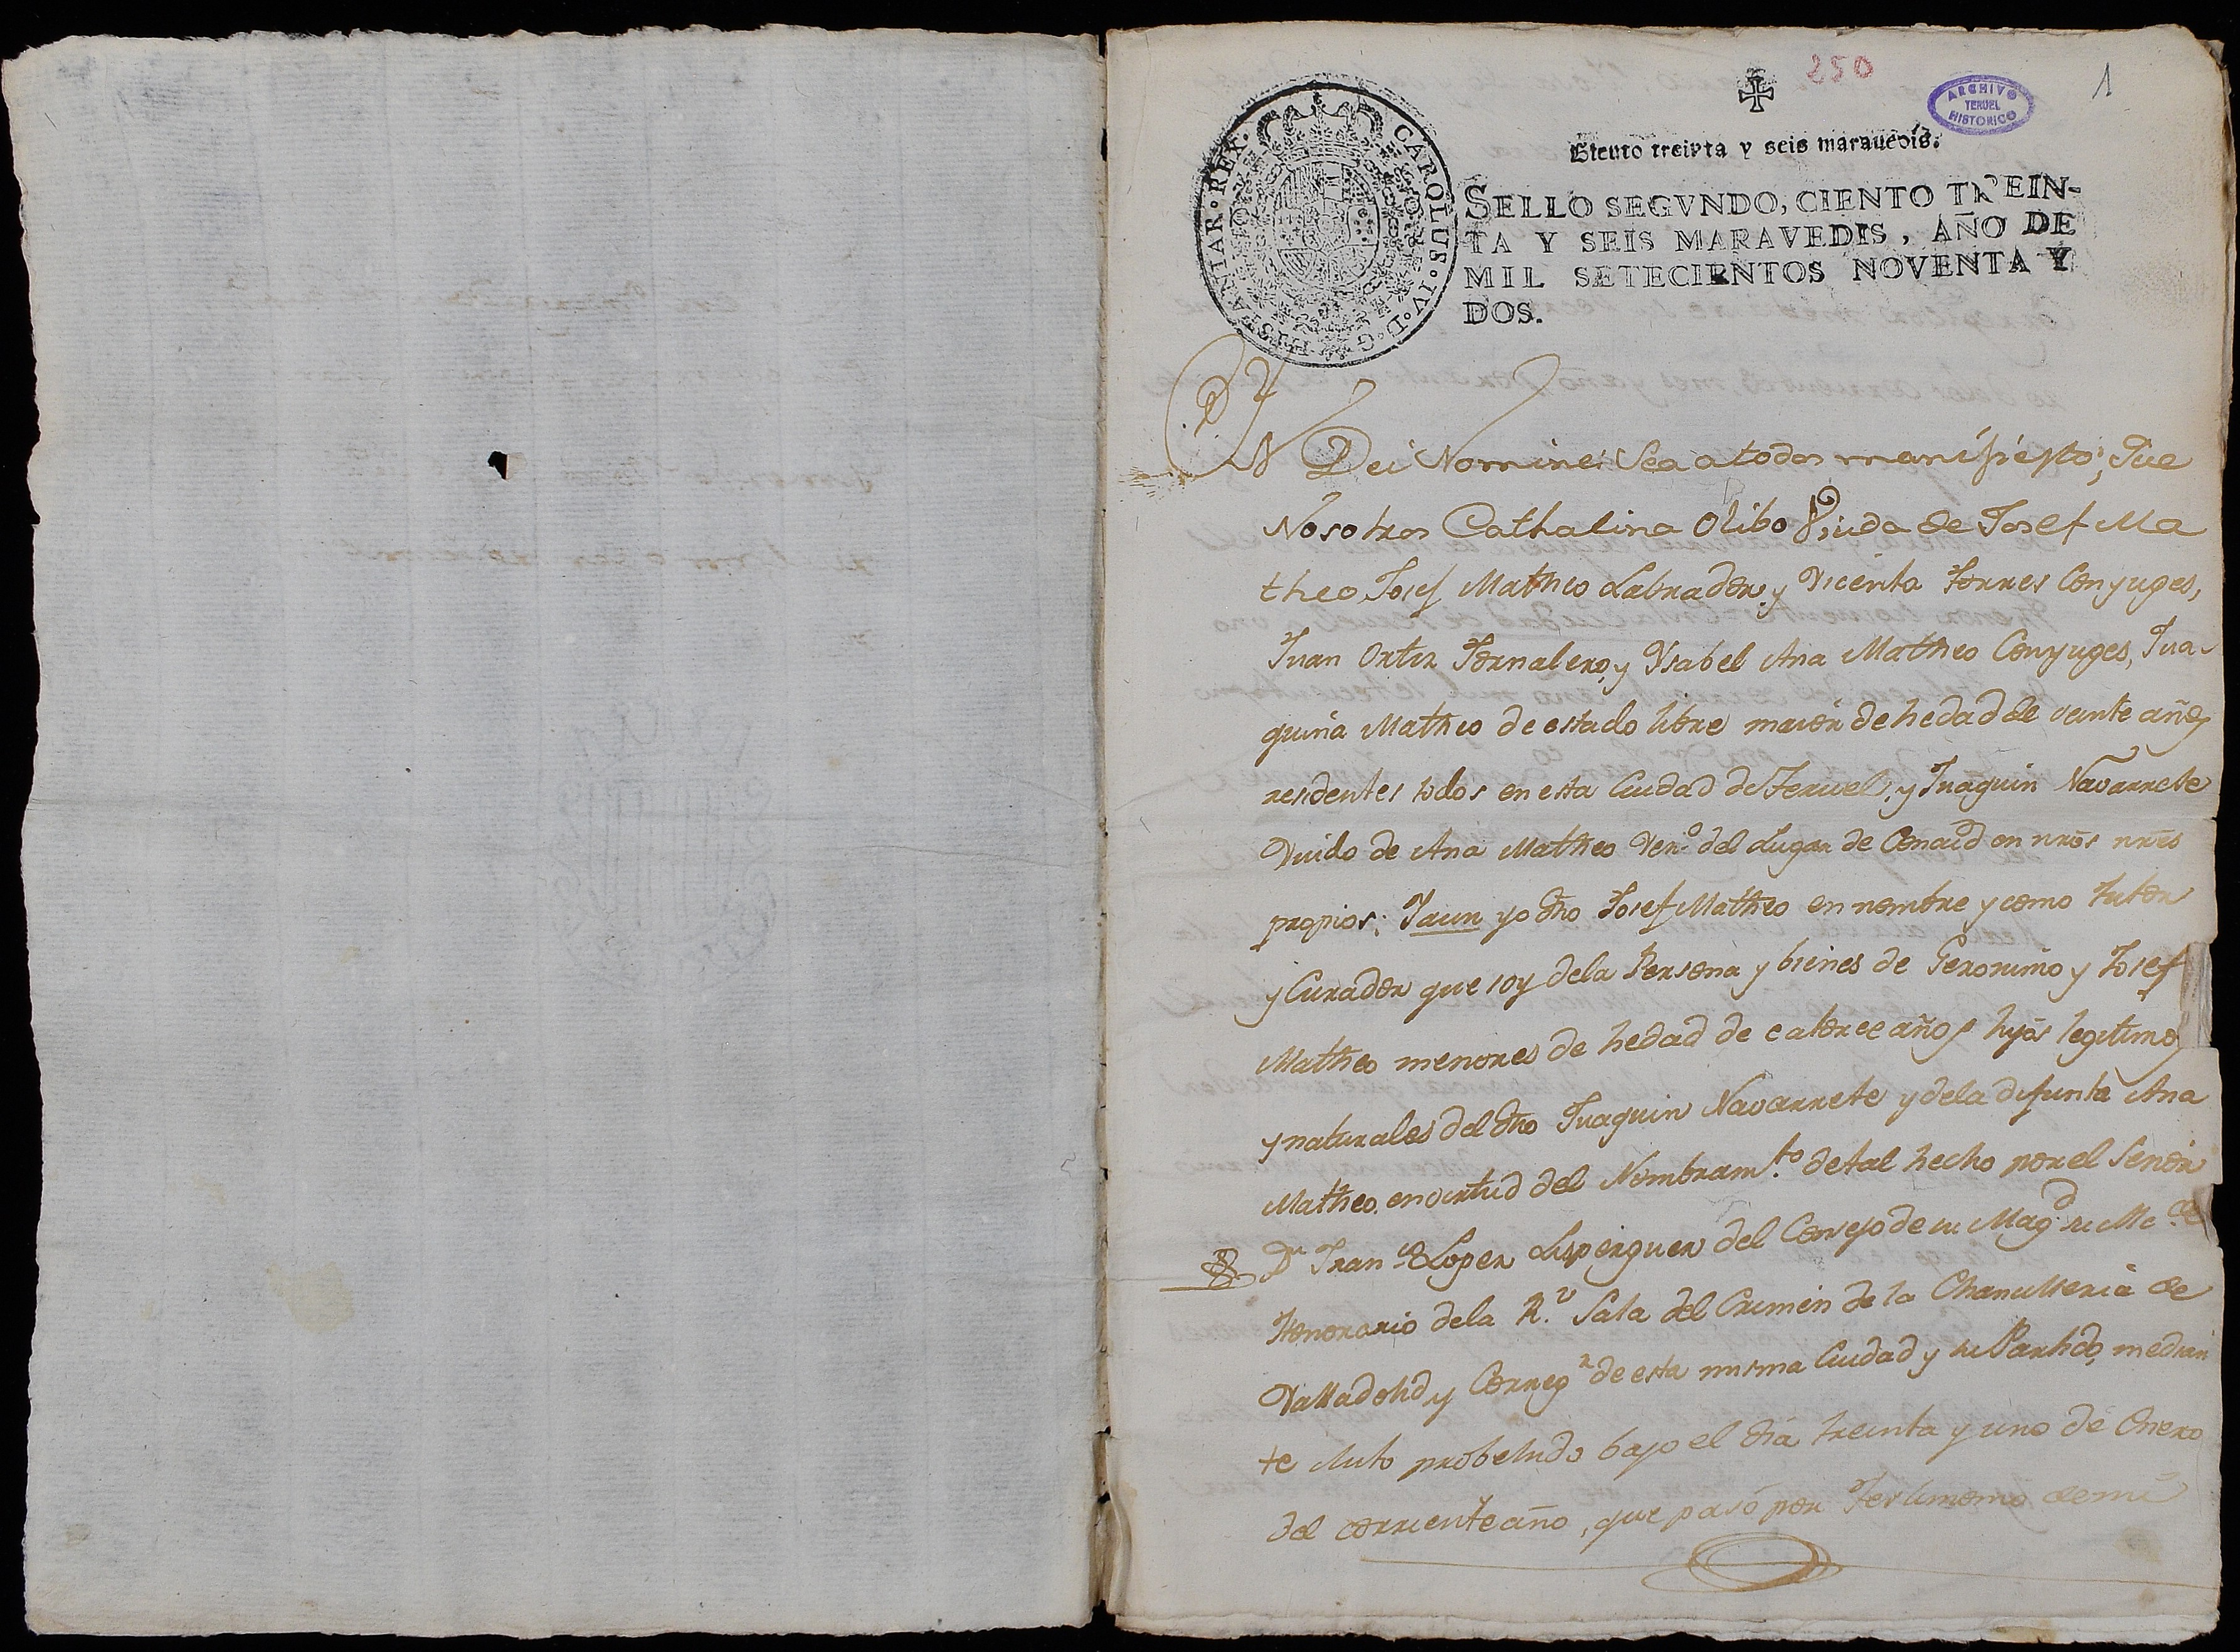 250
1
ARCHIVO
TERUEL
HISTORICO
CAROLUS · IV · D · G · HISPANIAR · REX ·
Ciento treinta y seis marauedis.
SELLO SEGVNDO, CIENTO TREIN-
TA Y SEIS MARAVEDIS, AÑO DE
MIL SETECIENTOS NOVENTA Y
DOS.
YN Dei Nomine: Sea a todos manifiesto; Que
Nosotros Cathalina Olibo Viuda de Josef Ma
theo, Josef Matheo Labrador, y Vicenta Torres Conyuges,
Juan Ortiz Jornalero, y Ysabel Ana Matheo Conyuges, Jua-
quina Matheo de estado libre maior de hedad de veinte años
residentes todos en esta Ciudad de Teruel, y Juaquin Navarrete
Viudo de Ana Matheo Vez.º del Lugar de Conaud en nrōs nrēs
propios: Yaun yo dho Josef Matheo en nombre y como Tutor
y Curador que soy dela Persona y bienes de Geronimo y Josef
Matheo menores de hedad de catorce años hijos legitimos
y naturales del dho Juaquin Navarrete y dela difunta Ana
Matheo, en virtud del Nombram.to de tal hecho por el Señor
Dn Fran.co Lopez Lisperguer del Consejo de su Mag.d su Alc.de
Honorario dela R.l Sala del Crimen de la Chancilleria de
Valladolid y Correg.r de esta misma Ciudad y su Partido, median
te Auto probehido bajo el dia treinta y uno de Enero
del corriente año, que pasó por Testimonio de mi